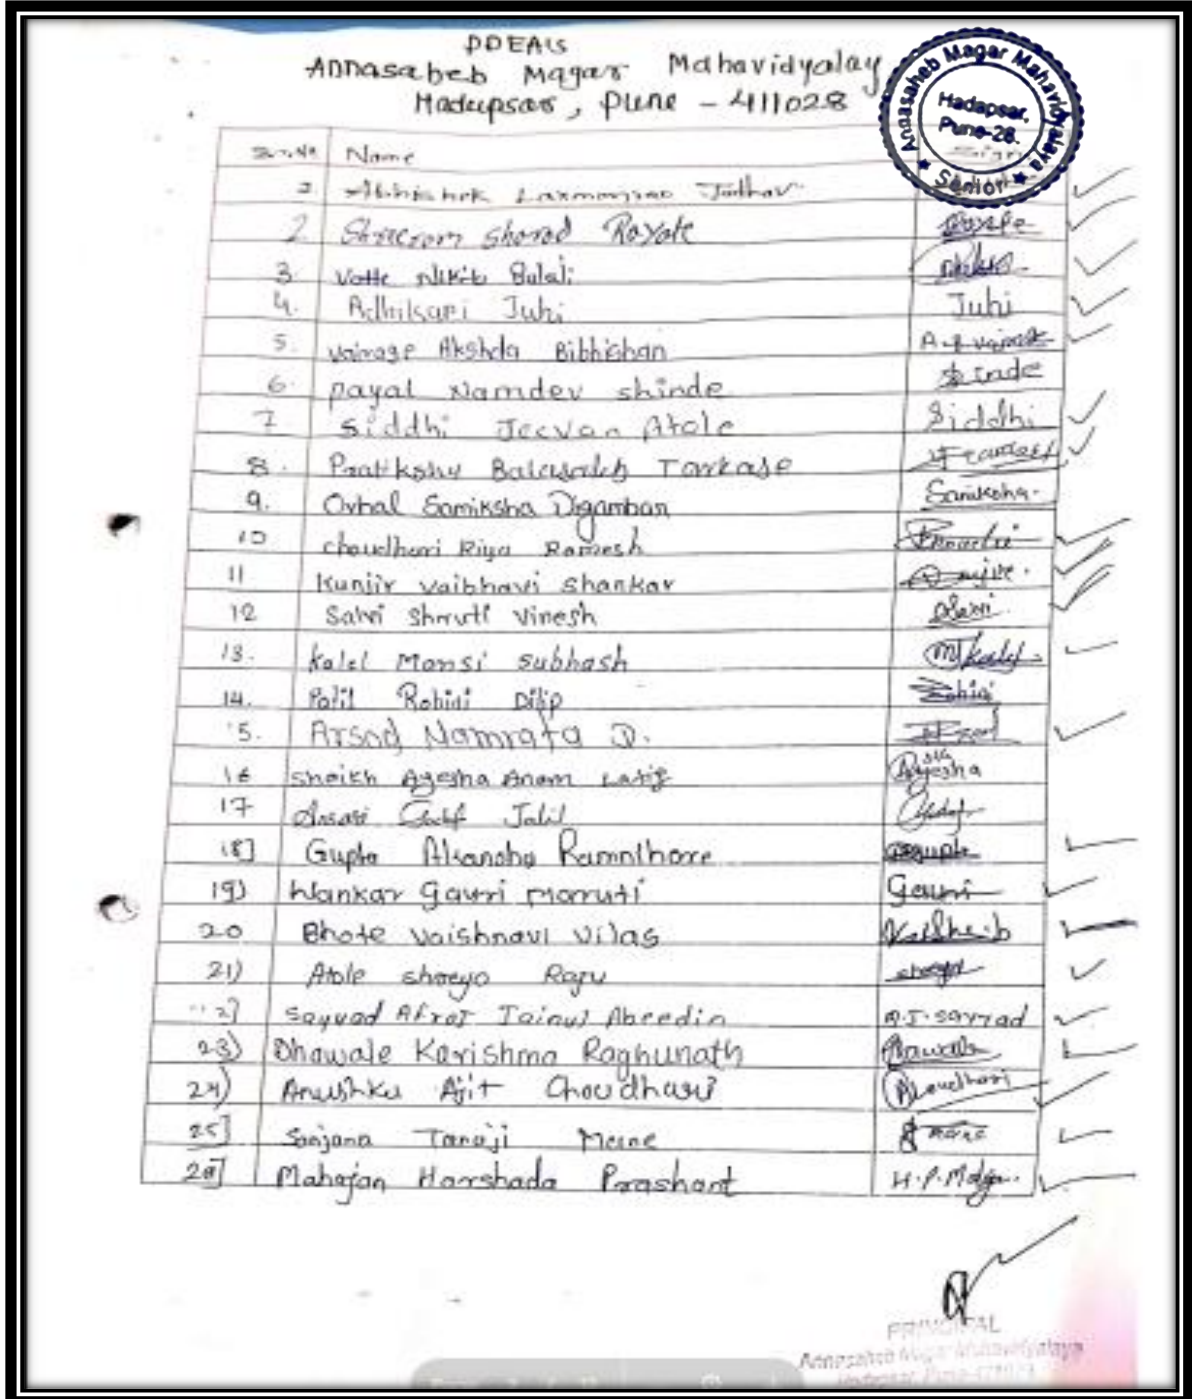 PDEA's
Annasaheb Magar Mahavidyalay
Hadapsar, Pune - 411028
Annasaheb Magar Mahavidyalaya
Hadapsar,
Pune-28.
Senior
Sr. No Name Sign
1. Abhishek Laxmanrao Jadhav
2. Shreeram Sharad Rayate Rayate
3. Votte Nikib Balaji
4. Adhikari Juhi Juhi
5. Vairage Akshda Bibhishan
6. payal Namdev shinde
7 Siddhi Jeevan Atole Siddhi
8. Pratiksha Balasaheb Tarkase
9. Ovhal Samiksha Digambar Samiksha
10 choudhari Riya Ramesh
11 Kunjir vaibhavi shankar
12 Salvi Shruti Vinesh
13. Kalel Mansi subhash
14. Patil Rohini Dilip Rohini
15. Arsod Namrata D.
16 Shaikh Ayesha Anam Latif Ayesha
17 Ansari Jalil
18] Gupta Akansha Ramnihore Gupta
19) Wankar Gauri Maruti Gauri
20 Bhote vaishnavi vilas
21) Atole shreya Raju shreya
2] Sayyad Afroj Jainul Abeedin A.J. sayyad
23) Dhawale Karishma Raghunath
24) Anushka Ajit Choudhari Choudhari
25] Sanjana Tanaji Mane Mane
26] Mahajan Harshada Prashant H.P.
PRINCIPAL
Annasaheb Magar Mahavidyalaya
Hadapsar, Pune-411028